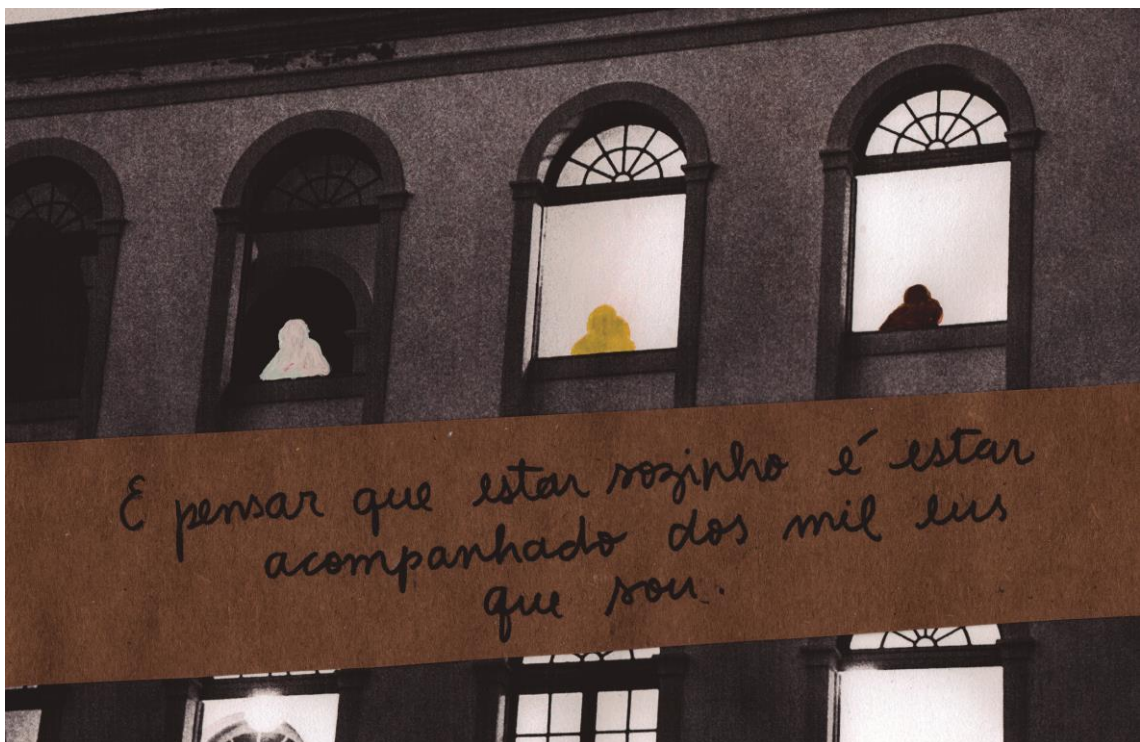 E pensar que estar sozinho é estar
acompanhado dos mil eus
que sou.